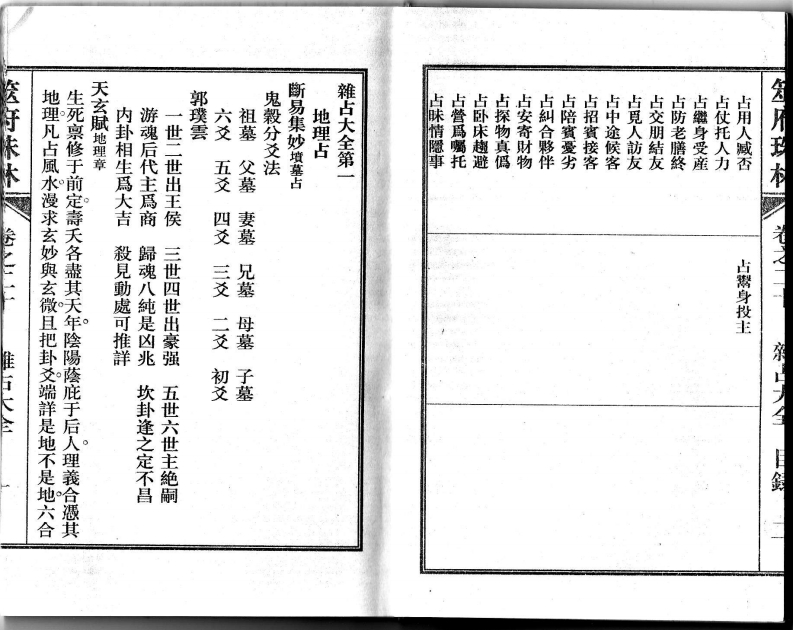 筮府珠林
卷之二十
雜占大全
目錄
二
占用人臧否
占仗托人力
占繼身受產
占防老膳終
占交朋結友
占覓人訪友
占中途候客
占招賓接客
占陪賓憂劣
占糾合夥伴
占安寄財物
占探物真僞
占卧床趨避
占營爲囑托
占昧情隱事
占鬻身投主
雜占大全第一
地理占
斷易集妙墳墓占
鬼穀分爻法
祖墓 父墓 妻墓 兄墓 母墓 子墓
六爻 五爻 四爻 三爻 二爻 初爻
郭璞雲
一世二世出王侯 三世四世出豪强 五世六世主絶嗣
游魂后代主爲商 歸魂八純是凶兆 坎卦逢之定不昌
内卦相生爲大吉 殺見動處可推詳
天玄賦地理章
生死禀修于前定。壽夭各盡其天年。陰陽蔭庇于后人。理義合憑其
地理。凡占風水。漫求玄妙與玄微。且把卦爻。端詳是地不是地。六合
筮府珠林
卷之二十
雜占大全
一